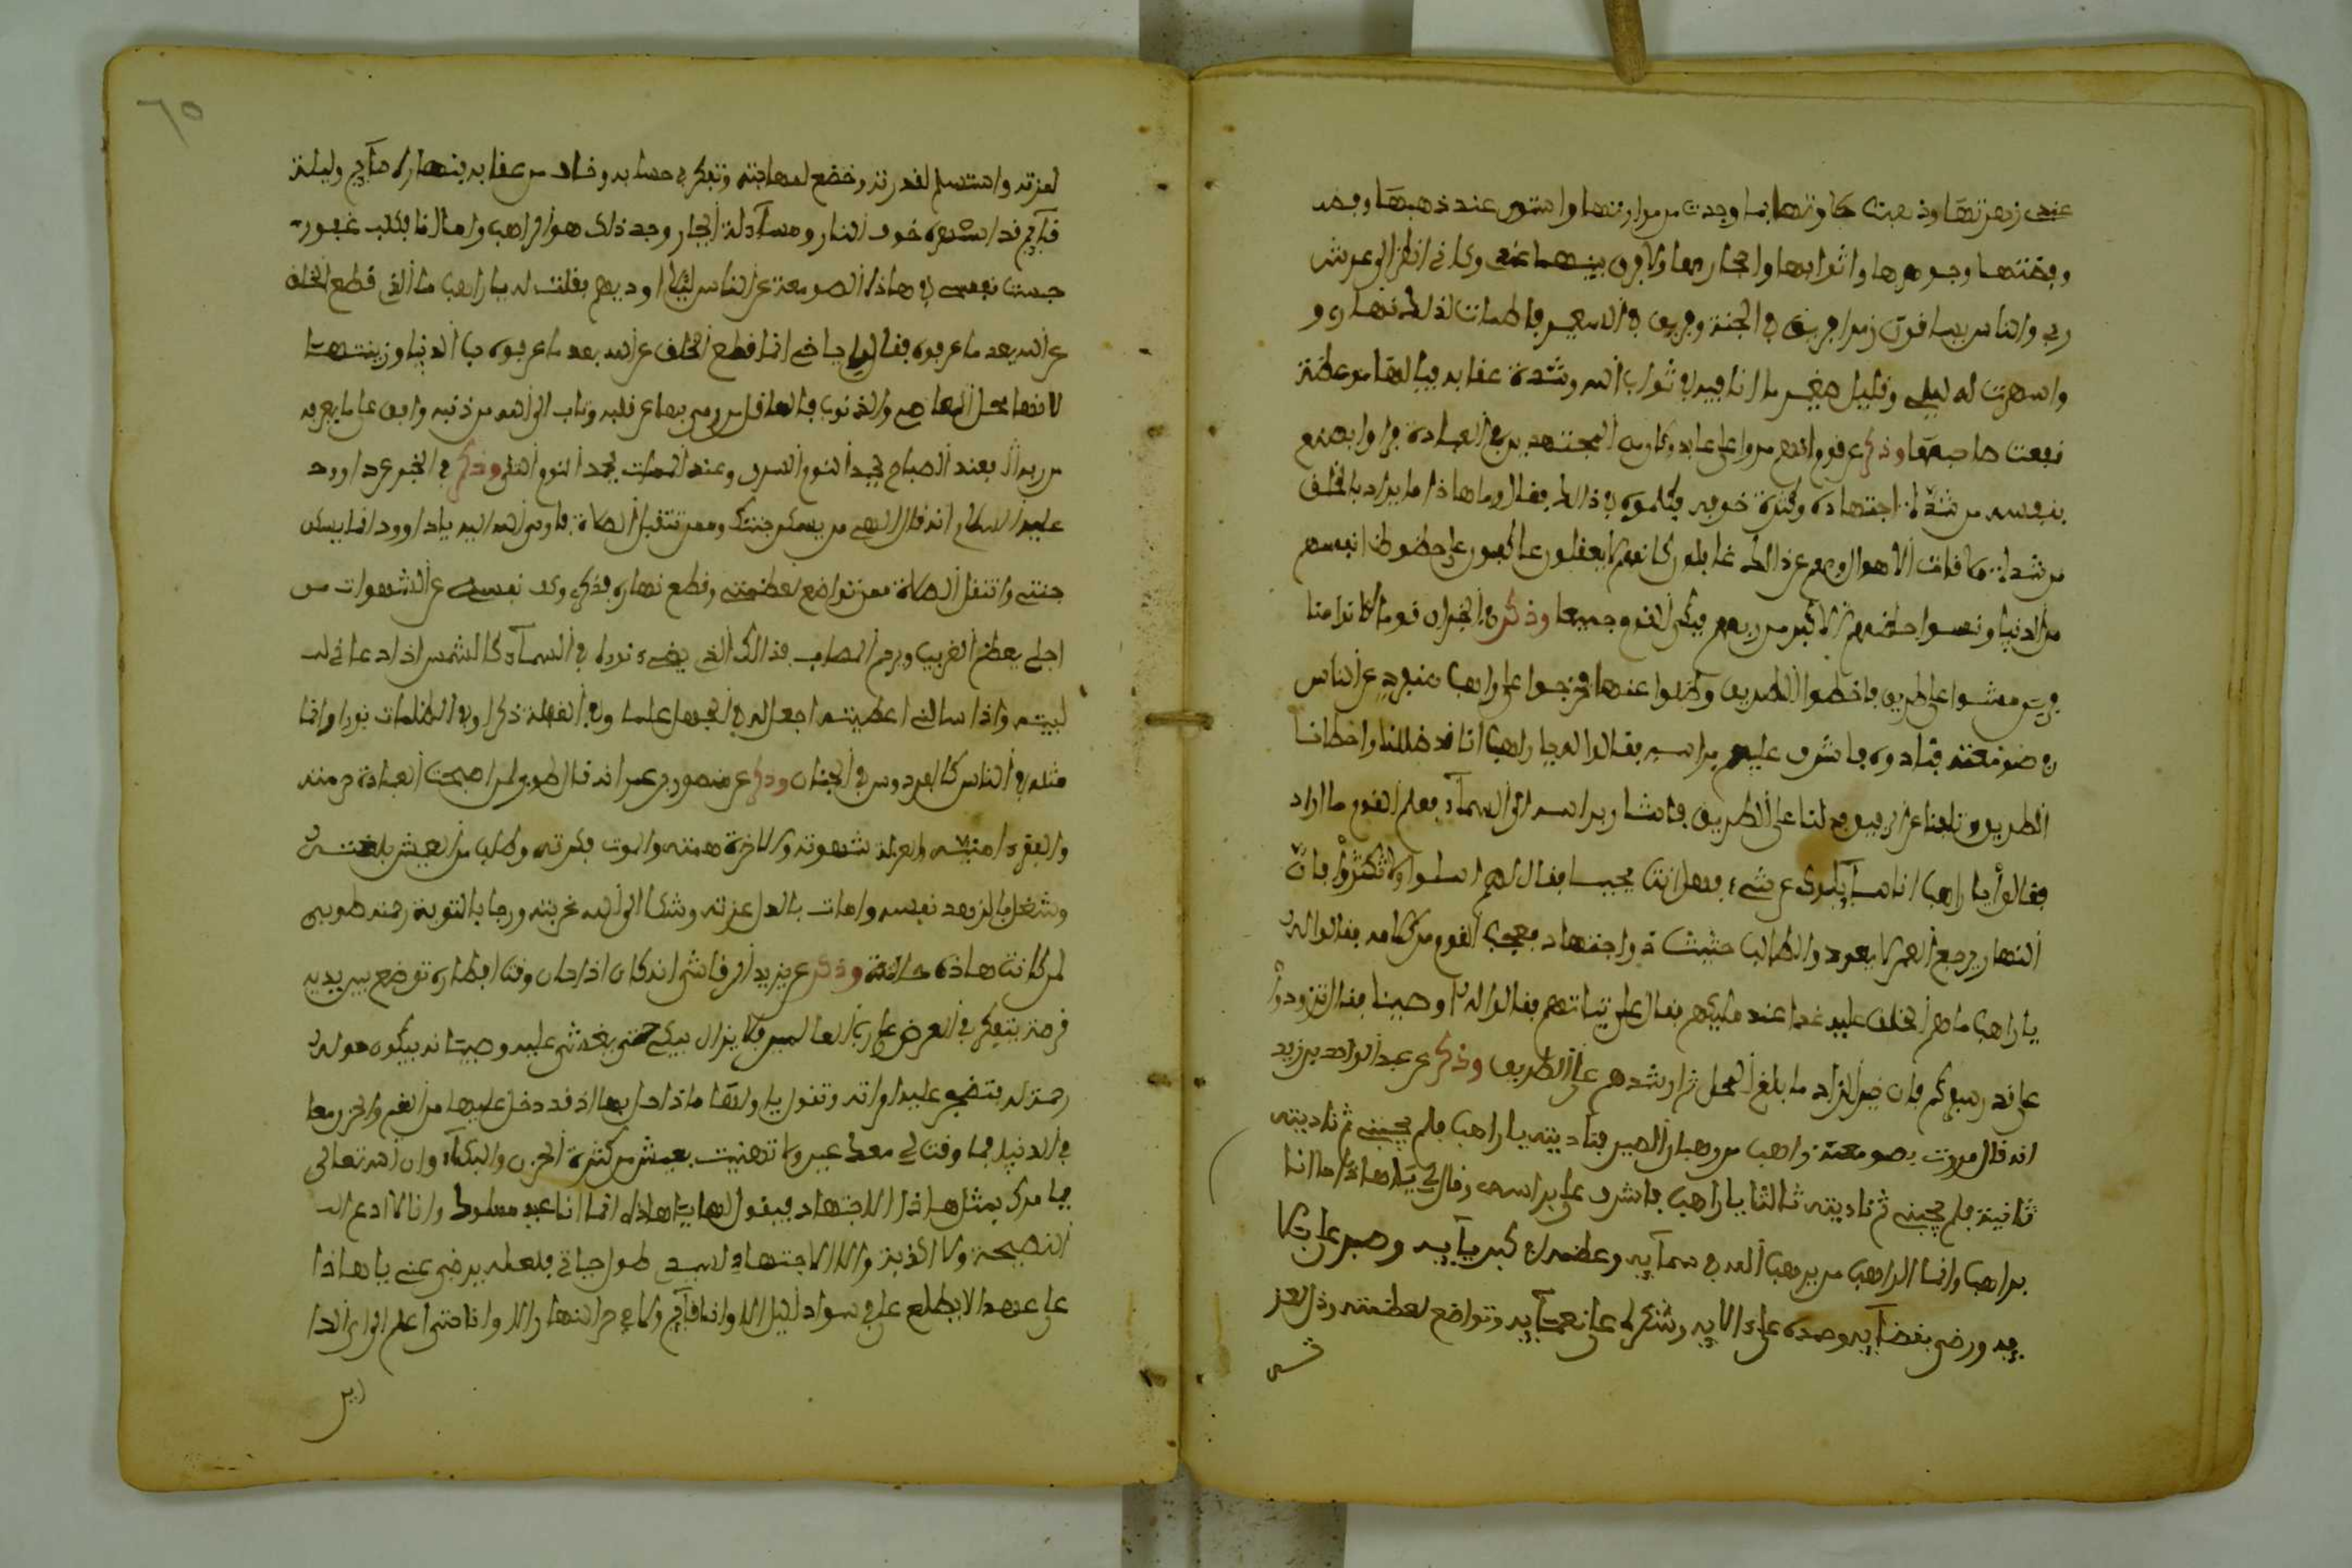 عندى زهرتها وذهبت حلاوتها بما وجدت من مرارتها واستوى عندى ذهبها وفضه
وفضتها وجوهرها واثوابها واحجارها ولا فرق بينهما عندى وكانى انظر الى عرش
ربي والناس يساقون زمرا فريق في الجنة وفريق في السعير فاظمات لذالك نهارى و
واسهرت له ليلى وقليل صغير ما انا فيه في ثواب الله وشدة عقابه فيالها موعظة
نفعت صاحبها وذكر عن قوم انهم مروا على عابد وكان من المجتهدين في العبادة فراوا بصنع
بنفسه من شدة اجتهاده وكثرة خوفه فكلموه في ذالك فقال وما هاذا ما يراد بالخلف
من شدة ملاقات الاهوال وهم عن ذالك غافلون كانهم لا يعقلون عاكفون على حظوظ انفسهم
من الدنيا ونسوا حظهم الاكبر من ربهم فبكى القوم جميعا وذكر في الخبر ان قوما كانوا منا
فريق مشوا على طريق فاخطوا الطريق وضلوا عنها فخرجوا على راهب منفرد عن الناس
في صومعته فنادوه فاشرف عليهم براسه فقالوا له يا راهب انا قد ضللنا واخطانا
الطريق فدلنا على الطريق فاشار براسه الى السمآء فعلم القوم ما اراد
فقالوا يا راهب انا سآيلوك عن شيء فهل انت مجيب فقال لهم اسلوا ولا تكثروا فان
النهار لن يرجع والعمر لا يعود والطالب حثيث ذو اجتهاد فعجب القوم من كلامه فقالوا له
يا راهب ما هم الخلف عليه غدا عند مليكهم فقال على نياتهم فقالوا له اوصينا فقال تزودوا
على قدر سفركم فان خير الزاد ما بلغ المحل ثم ارشدهم على الطريق وذكر عن عبد الواحد بن زيد
انه قال مررت بصومعة راهب من رهبان الصين فناديته يا راهب فلم يجيبنى ثم ناديته
ثانية فلم يجيبنى ثم ناديته ثالثا يا راهب فاشرف على براسه وقال لي يا هاذا ما انا
براهب وانما الراهب من يرهب الله في سمآيه وعظمه في كبريآيه وصبر على بلا
يه ورضى بقضآيه وحمده على ءالايه وشكره على نعمآيه وتواضع لعظمته وذل لعز
٦٥
لعزته واستسلم لقدرته وخضع لمهابته وتفكر في حسابه وخاف من عقابه فنهاره صآيم وليله
قآيم قد اسهره خوف النار ومسآلة الجبار وجد ذلك هو الراهب واما انا فكلب عقور
حبست نفسى في هاذه الصومعة عن الناس ليلا اوذيهم فقلت له يا راهب ما الذى قطع الخلف
عن الله بعد ما عرفوه فقال لى يا اخى انما قطع الخلف عن الله بعد ما عرفوه حب الدنيا وزينتها
لانها محل المعاصى والذنوب فالعاقل من رمى بها عن قلبه وتاب الى الله من ذنبه واقبل على ما يقربه
من ربه فعند الصباح يحمد القوم السرى وعند الممات يحمد القوم التقى وذكر في الخبر عن داوود
عليه السلام انه قال الاهى من يسكن جنتك وممن تتقبل الصلاة فاوحى الله اليه يا داوود انما يسكن
جنتى واتقبل الصلاة ممن تواضع لعظمتى وقطع نهاره بذكرى وكف نفسه عن الشهوات من
اجلى يطعم الغريب ويرحم المصاب فذالك الذى يضىء نوره في السمآء كالشمس اذا دعانى
لبيته واذا سالنى اعطيته اجعل له في الجهل علما وفي الغفلة ذكرا وفي الظلمات نورا وانما
مثله في الناس كالفردوس في الجنان وذكر عن منصور بن عمر انه قال طوبى لمن اصبحت العبادة حرفته
والفقر امنيته والعزلة شهوته والاخرة همته والموت فكرته وطلب من العيش بلغته
وشغل بالزهد نفسه وامات بالذل عزته وشكا الى الله غربته ورجا بالتوبة رحمته طوبى
لمن كانت هاذه حالته وذكر عن يزيد الرقاشى انه كان اذا حان وقت افطاره توضع بين يديه
قرصة يتفكر في العرض على رب العالمين فلا يزال يبكى حتى يغشى عليه وصبيانه يبكون حوله
رحمة له فتضجع عليه امراته وتقول يا ويلتها ماذا حل بها اذ قد دخل عليها من الغم والحزن معك
في الدنيا فما وقت لي معك عين ولا تهنيت بعيش من كثرة الحزن والبكآء وان الله تعالى
ما امرك بمثل هاذا الاجتهاد فيقول لها يا هاذه انما انا عبد مملوك وانا لا ادع الى
النصيحة ولا الذنب والله لاجتهادن لسيدى طول حياتى فلعله يرضى عنى يا هاذا
على عهد الا يطلع على في سواد الليل الا وانا قآيم ولا في حر النهار الا وانا صايم حتى اعلم الى اى الدا
رين